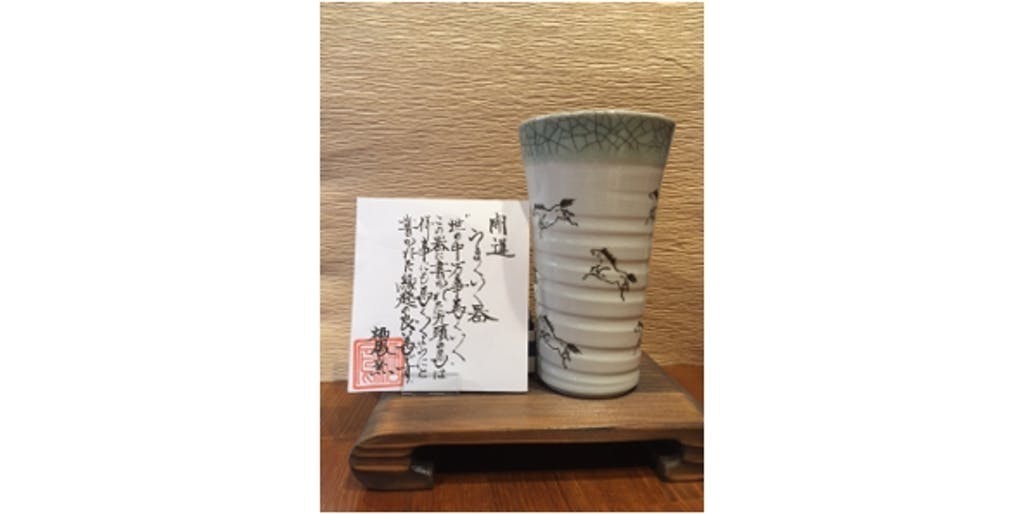 開運
うまくいく器
"世の中万事馬くいく、
この器に書かれた九頭の馬は
何事にも馬くいくようにと
書かれた縁起の良い馬です。